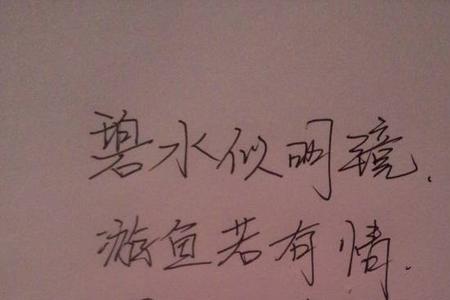 碧水似明镜.
游鱼若有情.